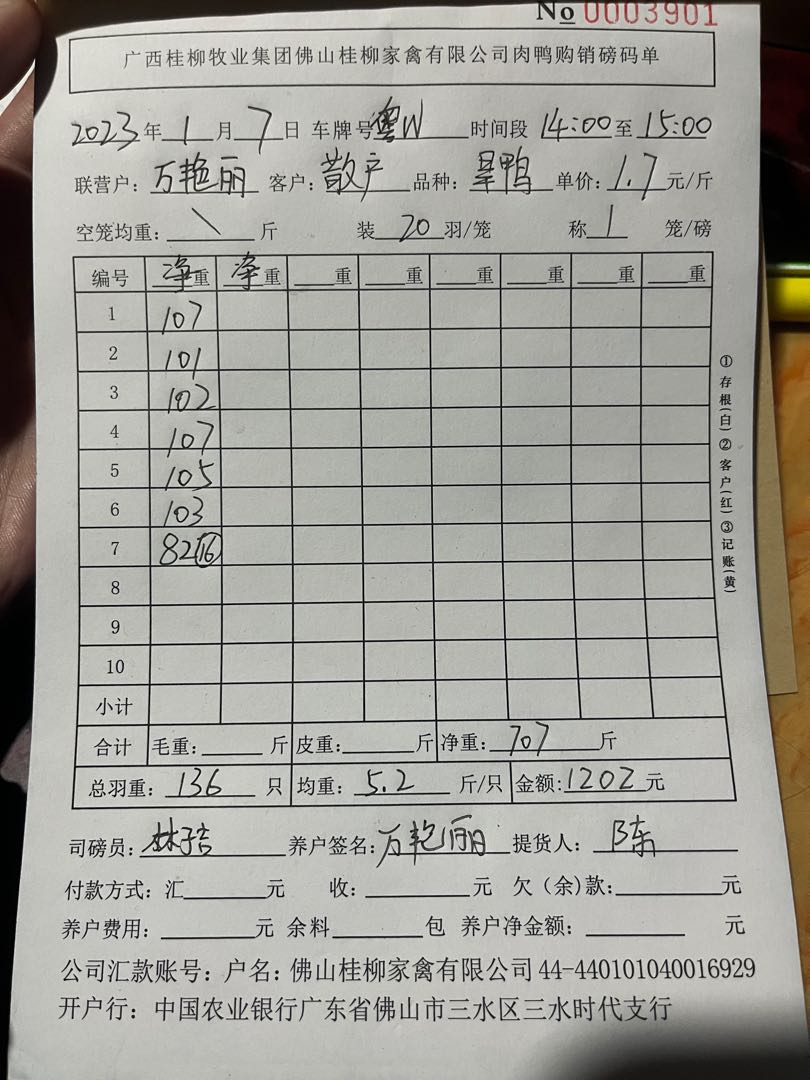 No 0003901
广西桂柳牧业集团佛山桂柳家禽有限公司肉鸭购销磅码单
2023年1月7日 车牌号粤W 时间段 14:00至15:00
联营户：万艳丽 客户：散户 品种：旱鸭 单价：1.7元/斤
空笼均重：\斤 装20羽/笼 称1笼/磅
编号 净重 净重 重 重 重 重 重 重
1 107
2 101
3 102
4 107
5 105
6 103
7 82 16
8
9
10
小计
合计 毛重：斤 皮重：斤 净重：707斤
总羽重：136只 均重：5.2斤/只 金额:1202元
司磅员： 养户签名:万艳丽 提货人：陈
付款方式：汇元 收：元 欠（余)款：元
养户费用：元 余料包 养户净金额：元
公司汇款账号：户名：佛山桂柳家禽有限公司 44-440101040016929
开户行：中国农业银行广东省佛山市三水区三水时代支行
①存根(白)②客户(红)③记账(黄)